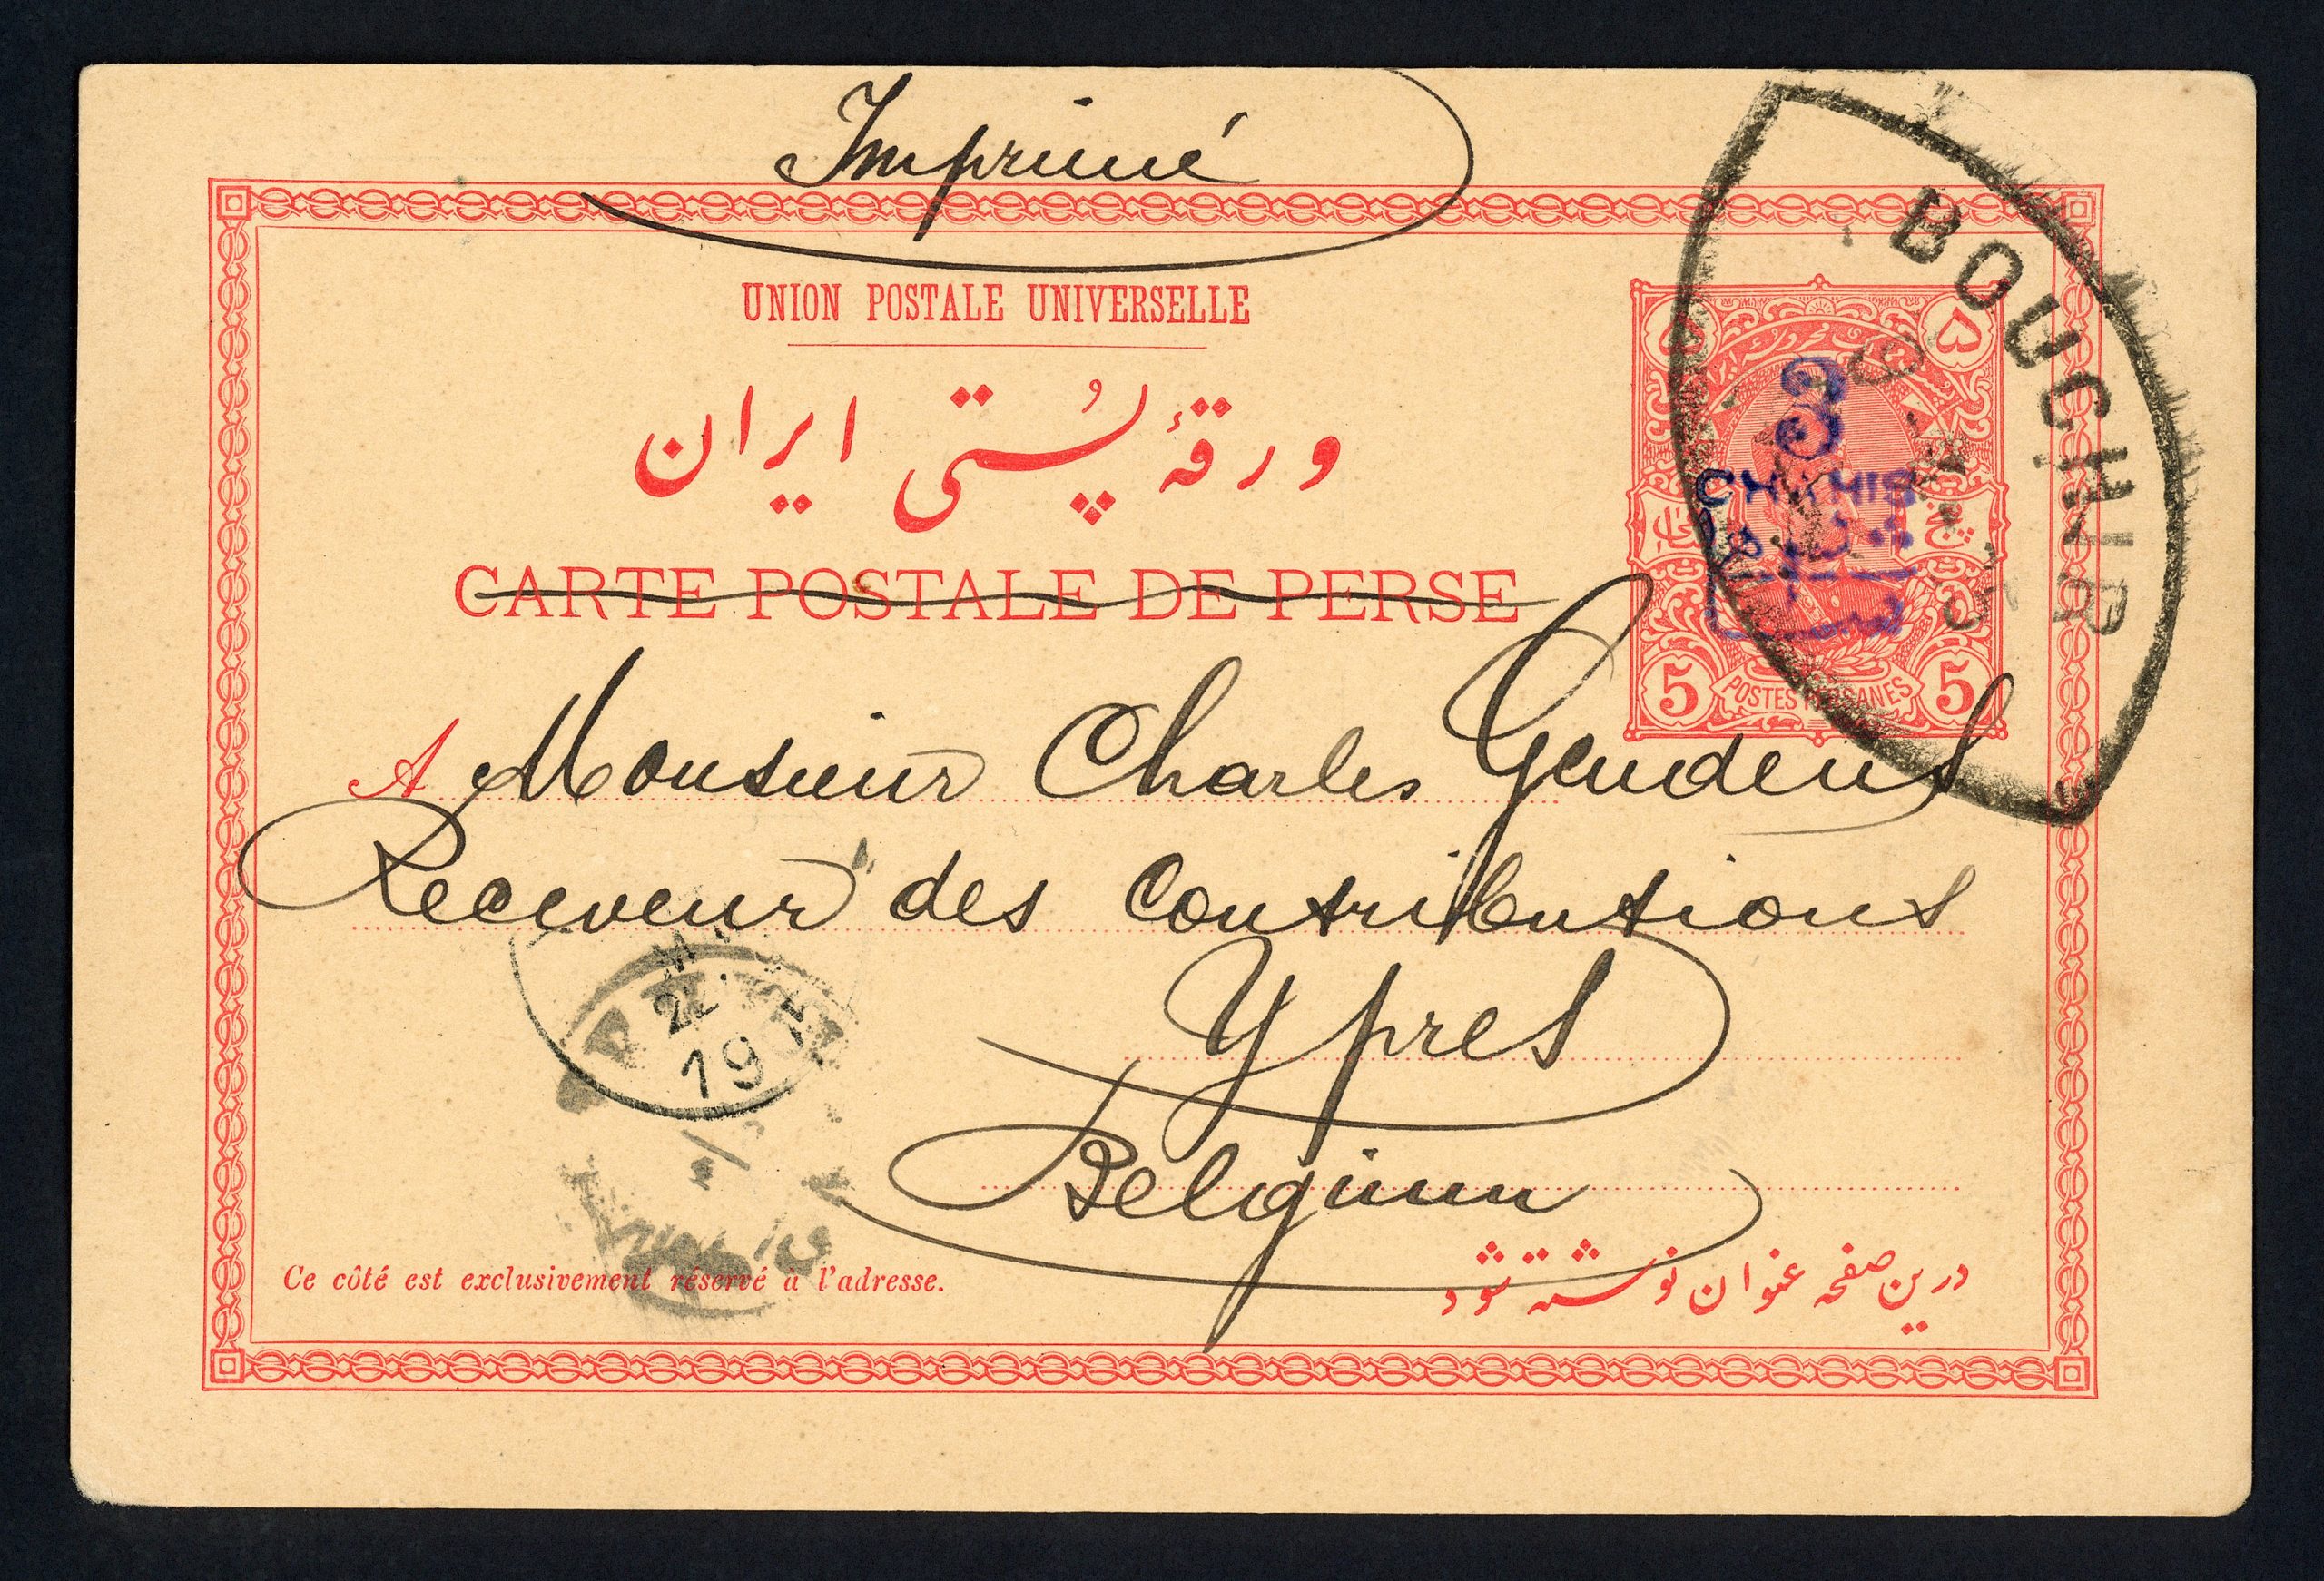 Imprimé
UNION POSTALE UNIVERSELLE
ورقهٔ پُستی ایران
CARTE POSTALE DE PERSE
BOUCHIR
۵ ۵
3
CHAHIS
5 POSTES PERSANES 5
A Monsieur Charles Gendens
Receveur des Contributions
Ypres
Belgium
22
19
Ce côté est exclusivement réservé à l'adresse.
درین صفحه عنوان نوشته شود